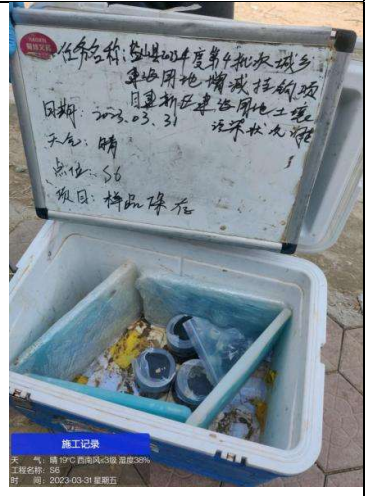 任务名称:盐山县2024年度第4批次城乡
建设用地增减挂钩项
目建新区建设用地土壤
污染状况调查
日期:2023.03.31
天气:晴
点位:S6
项目:样品保存
施工记录
天 气:晴 19℃ 西南风≤3级 湿度38%
工程名称:S6
时 间:2023-03-31 星期五